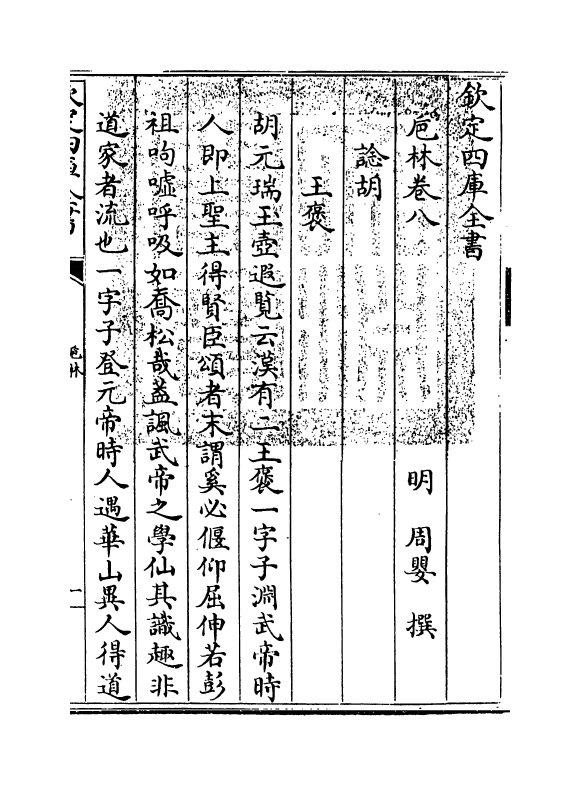 欽定四庫全書
巵林卷八　　　明　周嬰　撰
諗胡
王褒
胡元瑞玉壺遐覧云漢有二王褒一字子淵武帝時
人即上聖主得賢臣頌者末謂奚必偃仰屈伸若彭
祖呴噓呼吸如喬松哉葢諷武帝之學仙其識趣非
道家者流也一字子登元帝時人遇華山異人得道
欽定四庫全書
巵林
一